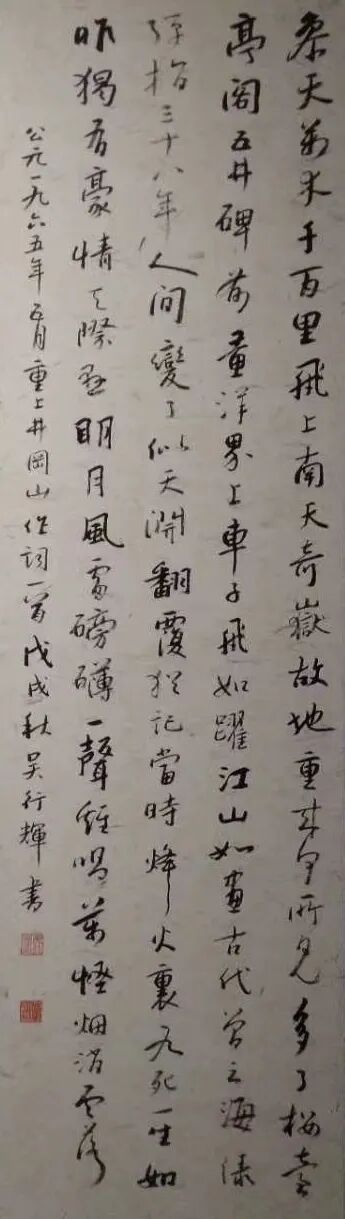 參天萬木千百里飛上南天奇嶽故地重來何所見多了樓臺
亭閣五井碑前黃洋界上車子飛如躍江山如畫古代曾云海綠
彈指三十八年人間變了似天淵翻覆猶記當時烽火裏九死一生如
昨獨有豪情天際懸明月風雷磅礴一聲雞唱萬怪烟消雲落
公元一九六五年五月重上井岡山作詞一首戊戌秋吳行輝書